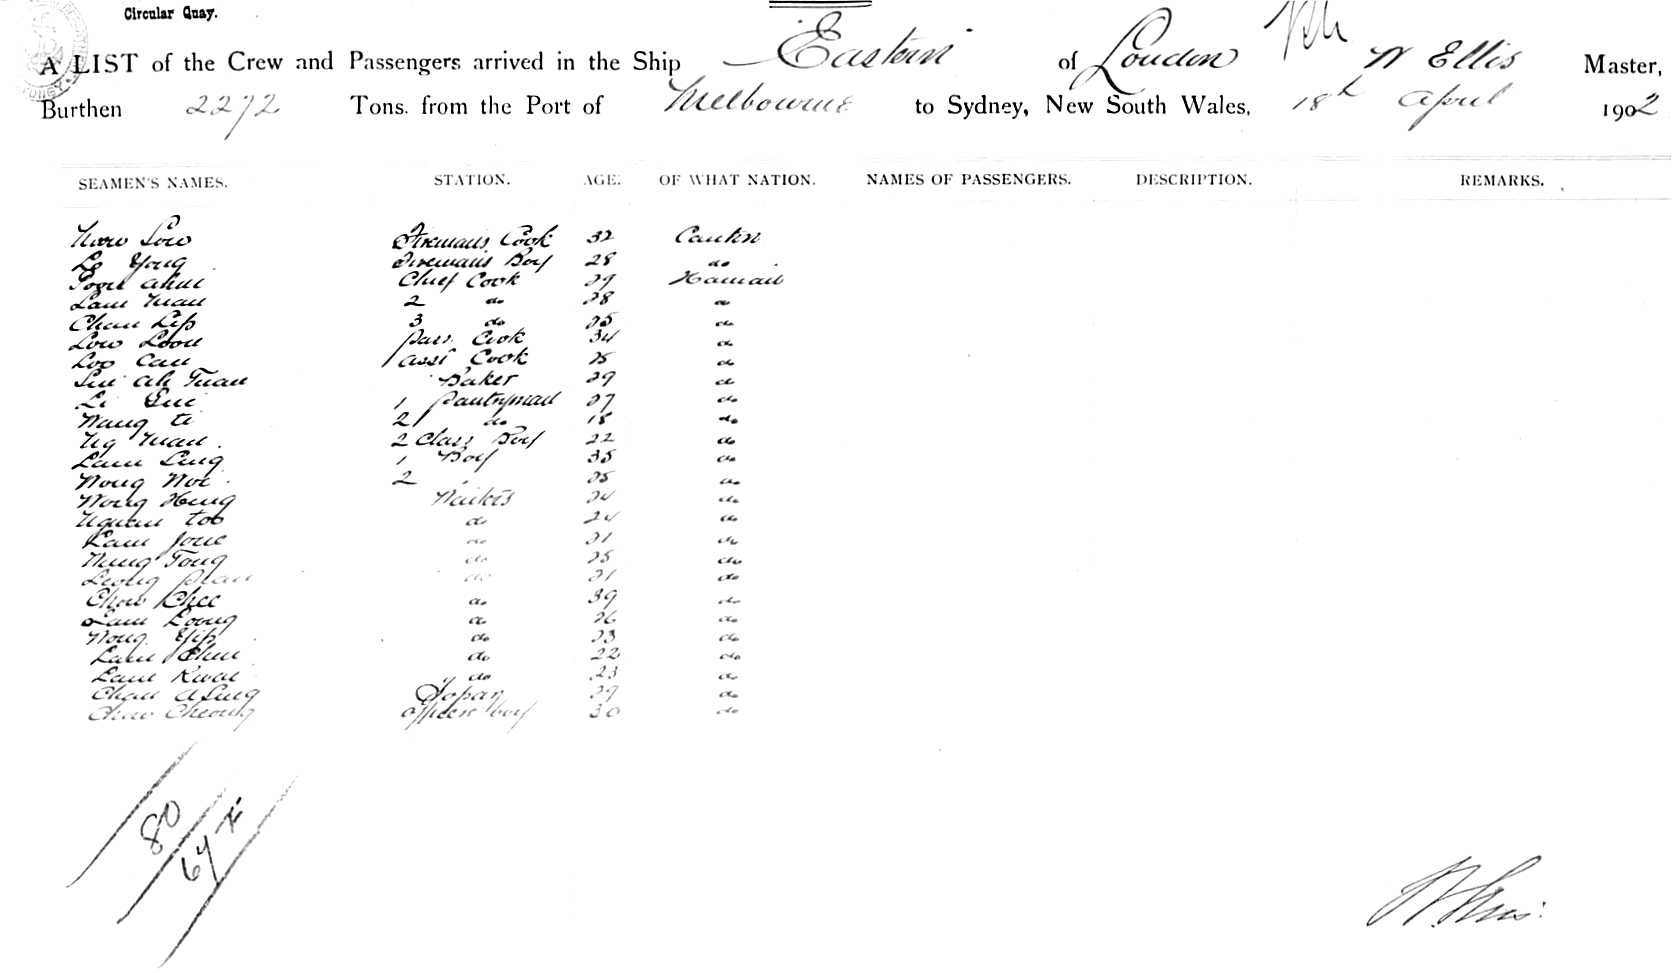 Circular Quay.
A LIST of the Crew and Passengers arrived in the Ship Eastern of London W Ellis Master,
Burthen 2272 Tons. from the Port of Melbourne to Sydney, New South Wales, 18th April 1902
SEAMEN'S NAMES. STATION. AGE. OF WHAT NATION. NAMES OF PASSENGERS. DESCRIPTION. REMARKS.
Low Firemans Cook 32 Canton
Yong Firemans Boy 28 do
Chief Cook 29
Lam 2 do 28 do
Chan Lip 3 do 25 do
Low Loou Pass. Cook 34 do
Loo Can Asst Cook 25 do
Ah Tuan Baker 29 do
Li Sui 1 Pantryman 27 do
Wang ti 2 do 18 do
Ng 2 Class Boy 22 do
Lam Ling 1 Boy 35 do
Wong Noi 2 " 25 do
Wong Hing Waiters 24 do
too do 24 do
Lam do 21 do
Tong do 25 do
Leong do 21 do
Chow Chee do 39 do
Lam Loong do 26 do
Wong Yip do 23 do
Lam Chu do 22 do
Lam Kwai do 23 do
Chan A Sing 29 do
Chow Cheong Officers boy 30 do
80
64